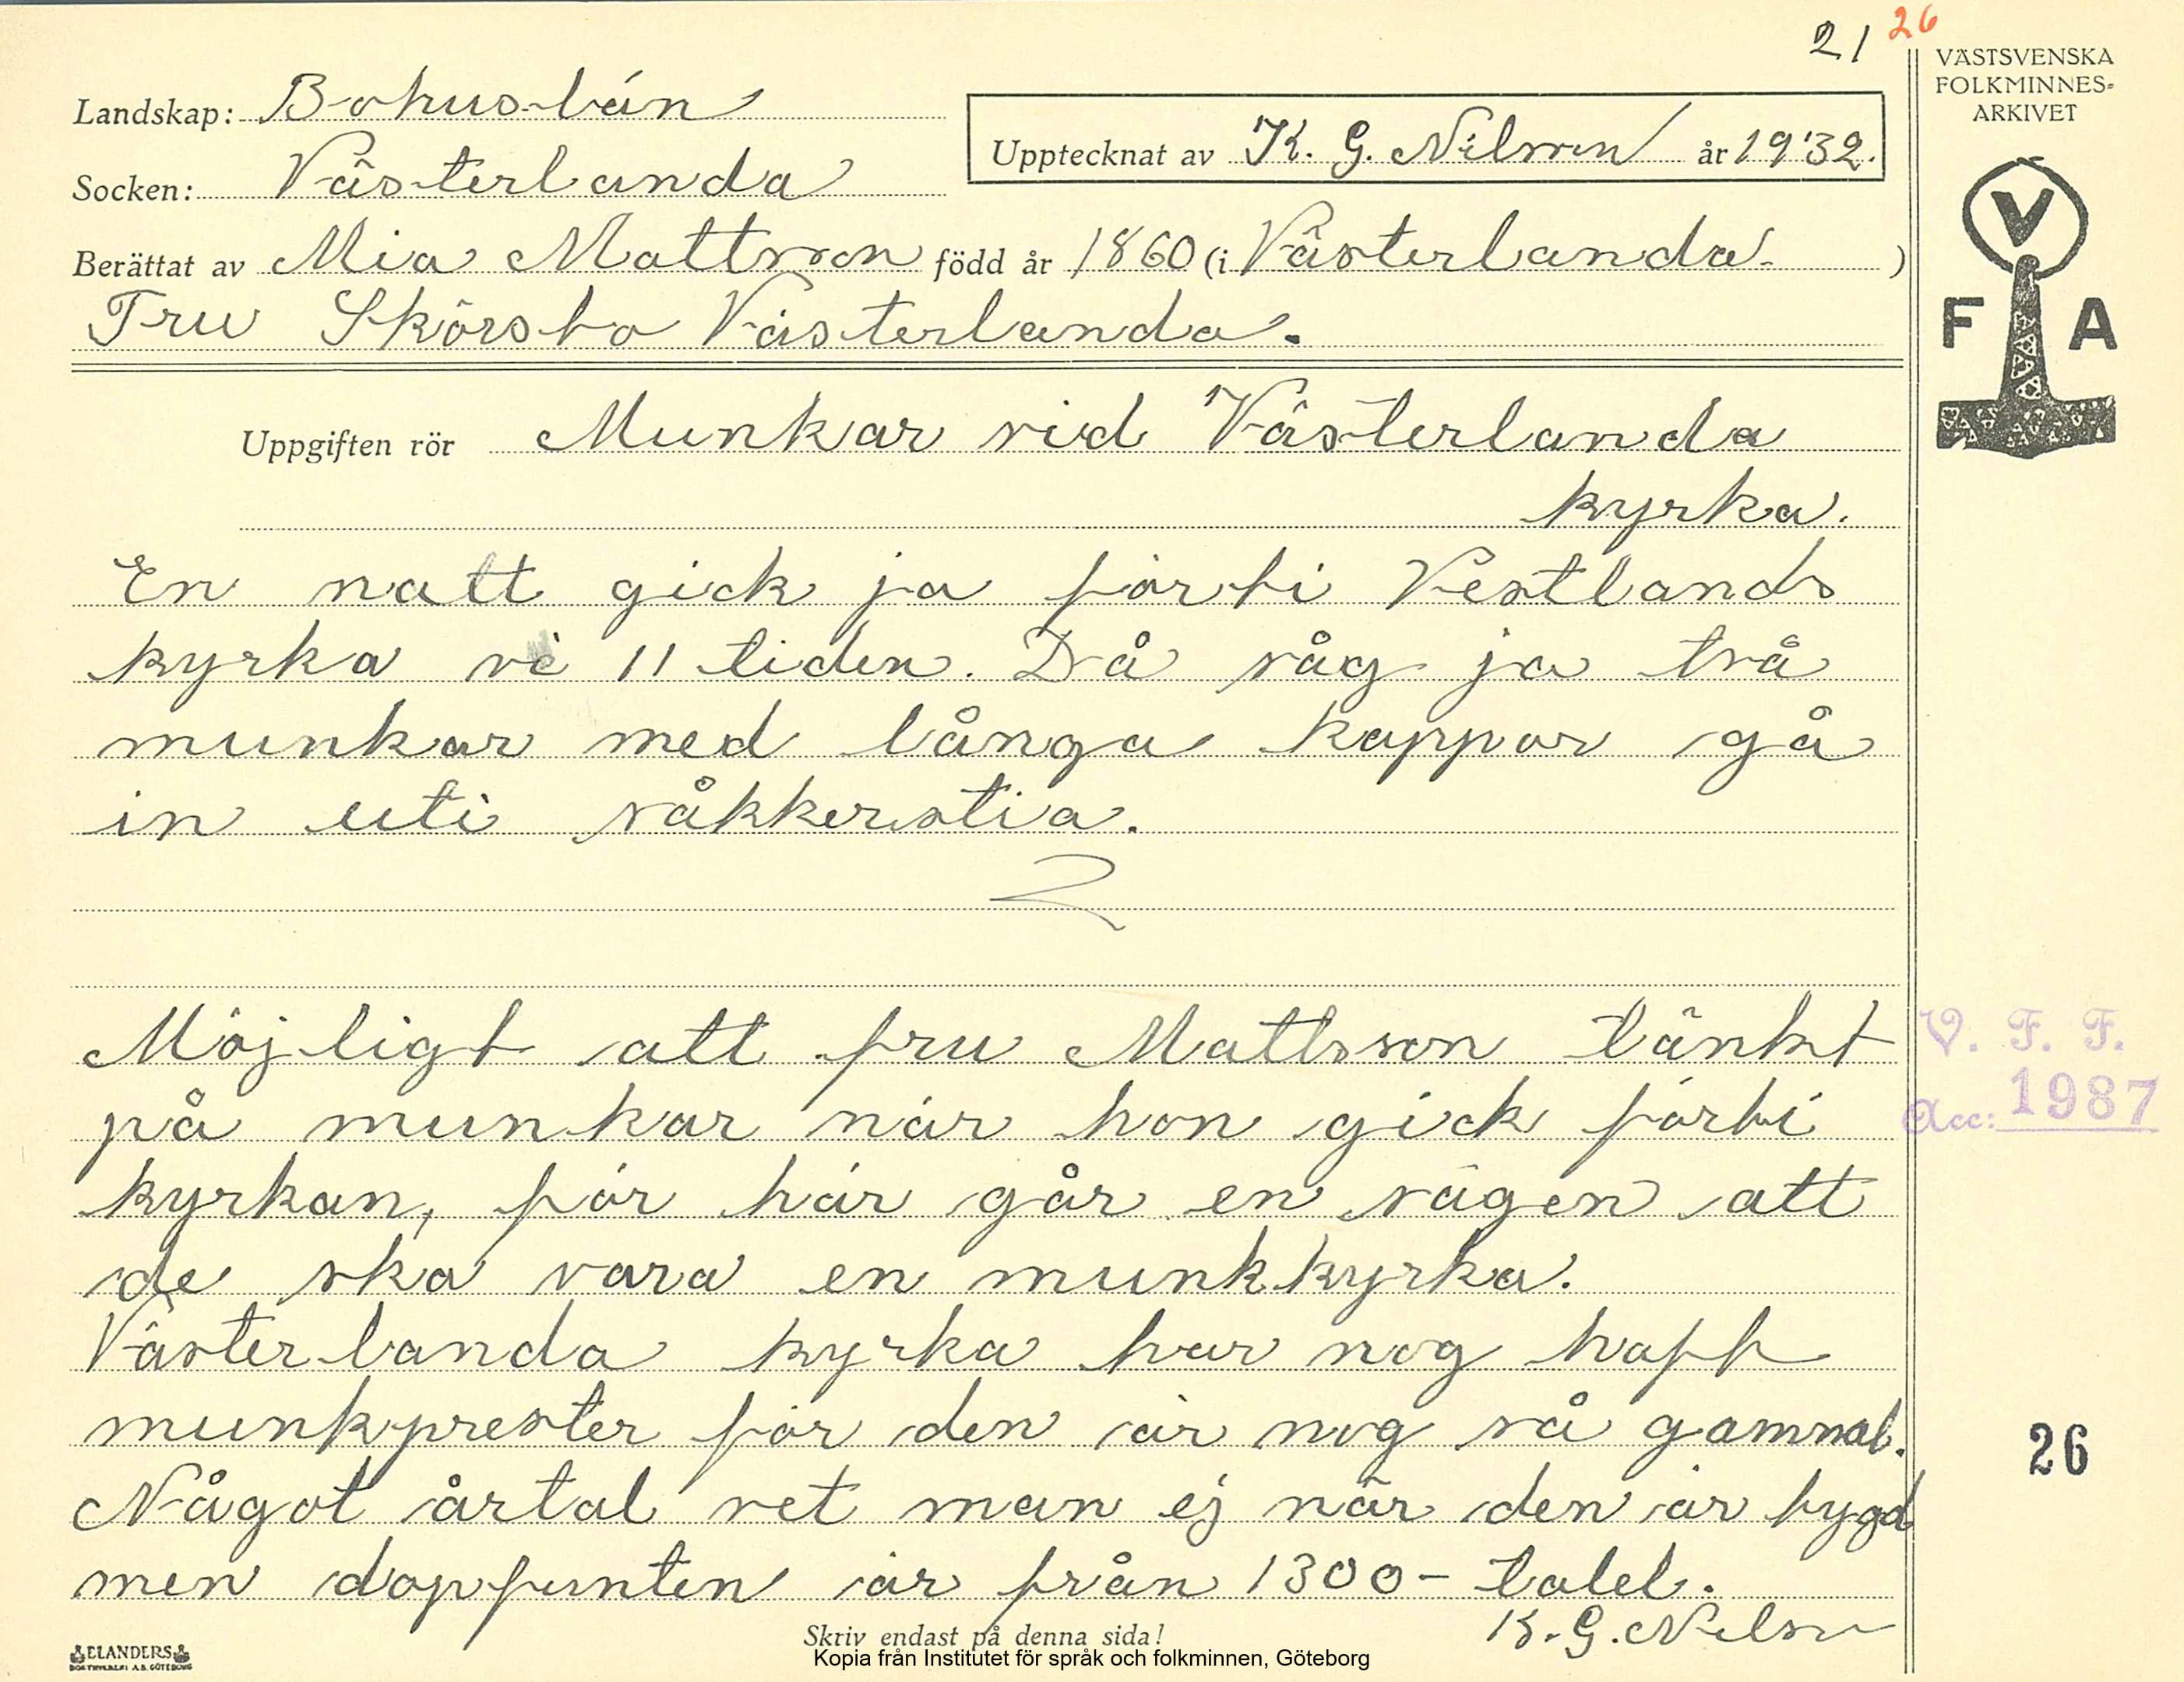 21 26
VÄSTSVENSKA
FOLKMINNES-
ARKIVET
Landskap: Bohuslän
Upptecknat av K. G. Nilsson år 1932.
Socken: Västerlanda
Berättat av Mia Mattsson född år 1860 (i Västerlanda. )
Fru Skörsbo Västerlanda.
V
F A
Uppgiften rör Munkar vid Västerlanda
kyrka.
En natt gick ja förbi Vestlands
kyrka ve 11 tiden. Då såg ja två
munkar med långa kappor gå
in uti såkkerstia.
Möjligt att fru Mattsson tänkt
på munkar när hon gick förbi
kyrkan, för här går en sägen att
de ska vara en munkkyrka.
Västerlanda kyrka har nog haft
munkprester för den är nog så gammal.
Något årtal vet man ej när den är bygd
men dopfunten är från 1300-talet.
K. G. Nilsson
V. F. F.
Acc: 1987
26
ELANDERS
BOKTRYCKERI A.B. GÖTEBORG
Skriv endast på denna sida!
Kopia från Institutet för språk och folkminnen, Göteborg